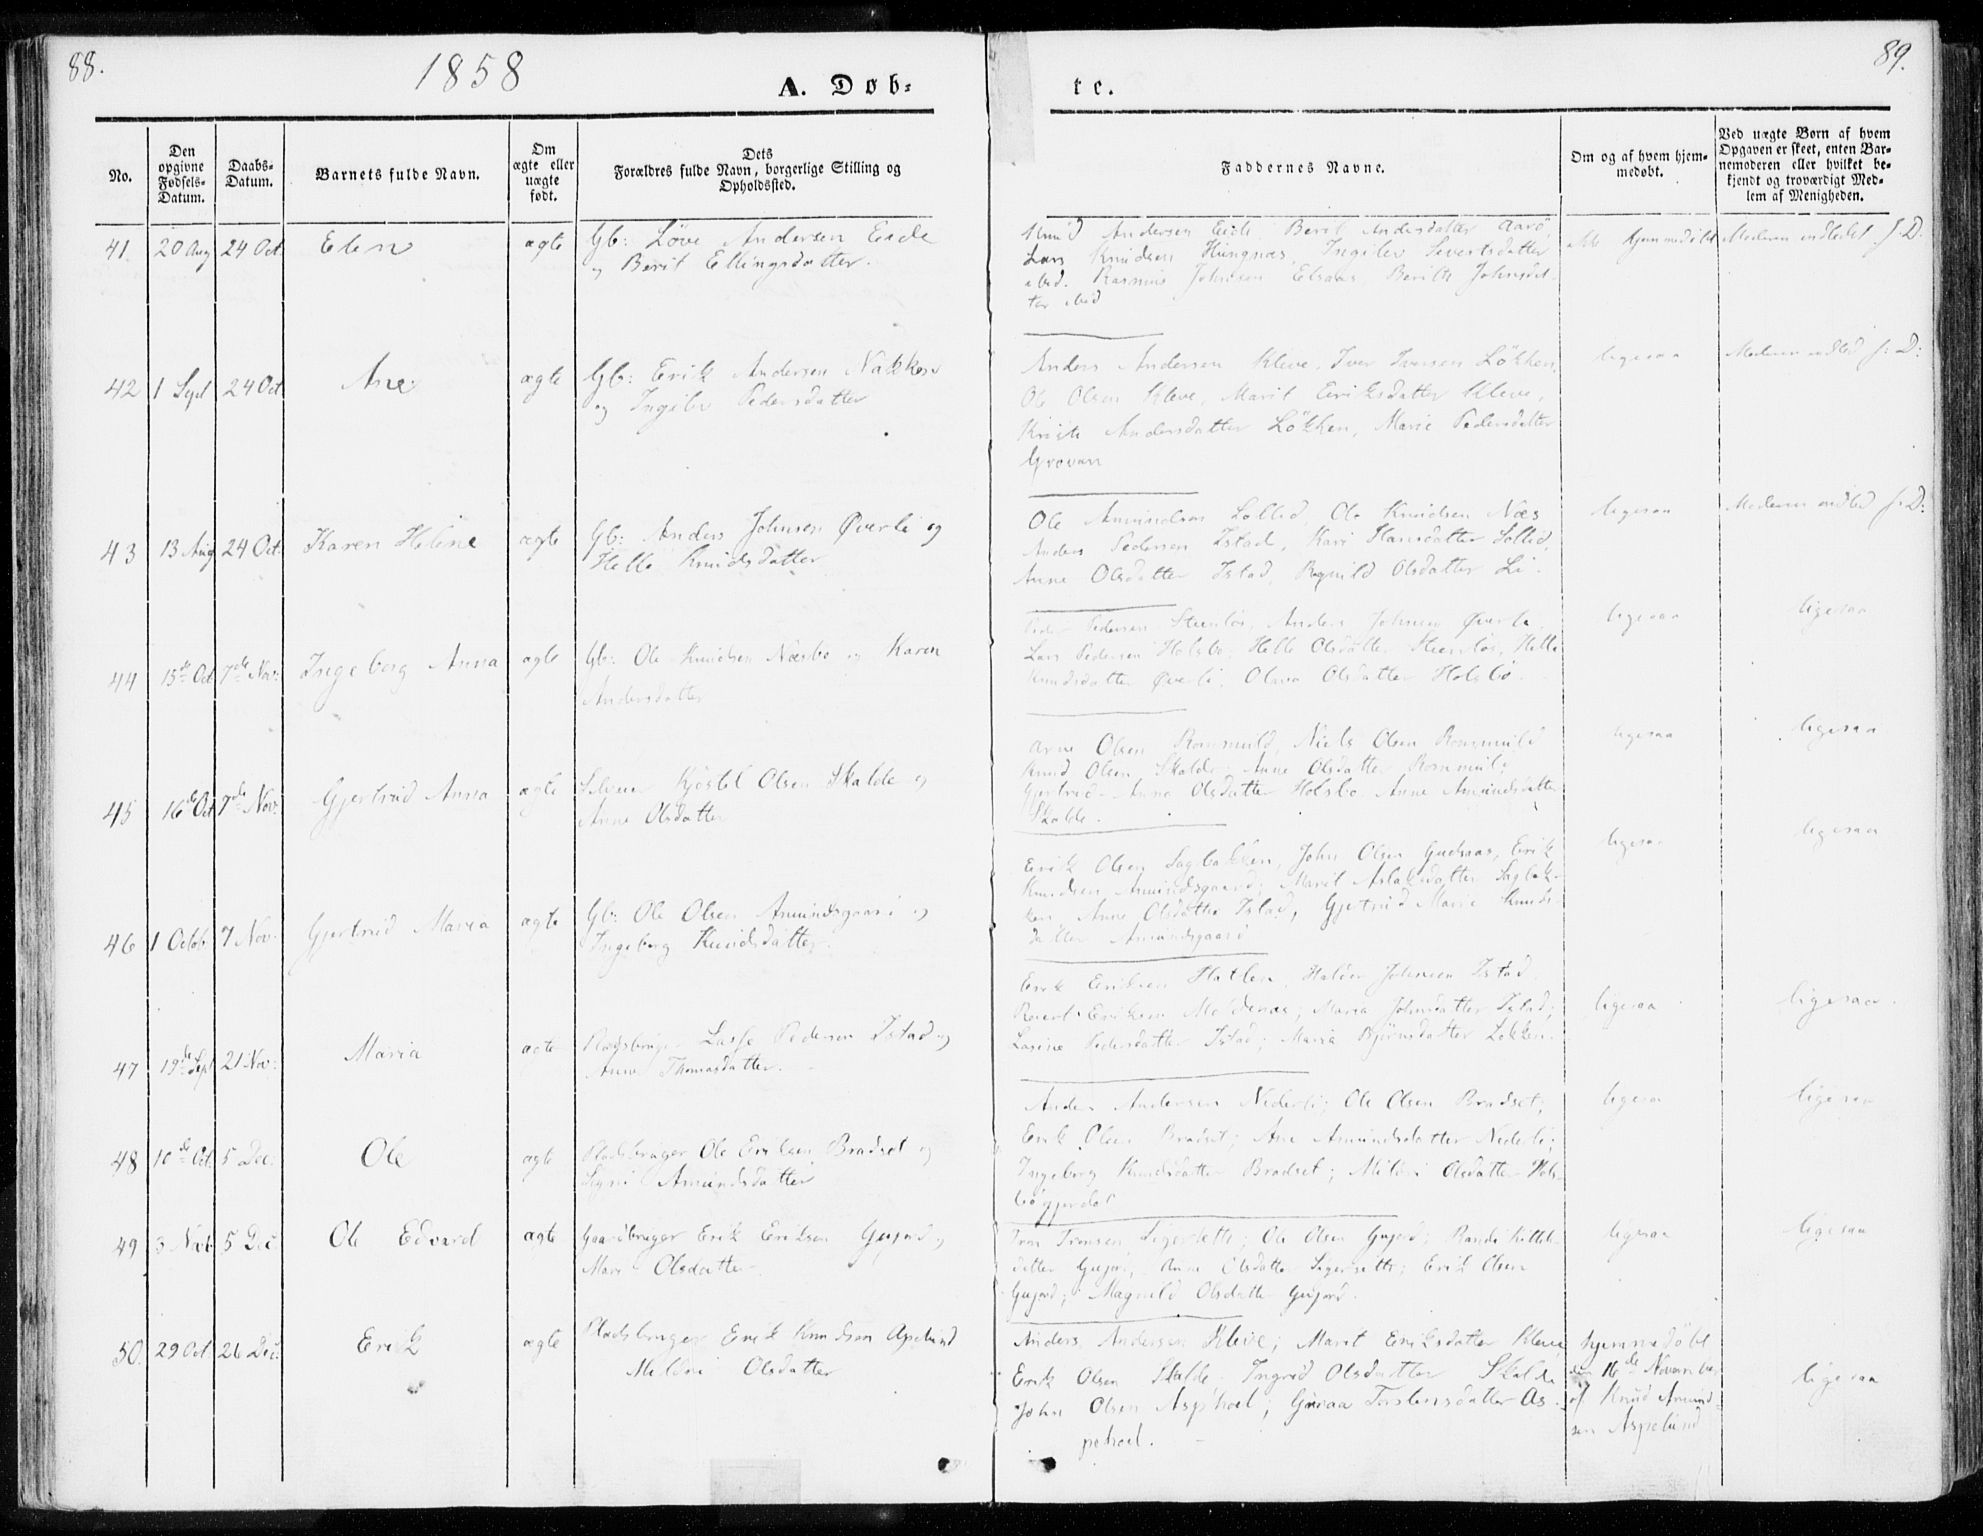 88.
1858
A. Døb-
te.
89.
No.
Den opgivne Fødsels-Datum.
Daabs-Datum.
Barnets fulde Navn.
Om ægte eller uægte født.
Dets Forældres fulde Navn, borgerlige Stilling og Opholdssted.
Faddernes Navne.
Om og af hvem hjem-medøbt.
Ved uægte Børn af hvem Opgaven er skeet, enten Bar-nemoderen eller hvilket be-kjendt og troværdigt Med-lem af Menigheden.
41 20 Aug 24 Oct. Elen ægte Gb: Andersen Eide
og Berit Ellingsdatter.
Knud Andersen Eide Berit Andersdatter Aarø,
Lars Knudsen Hungnæs, Ingelev Severtsdatter
ibid. Rasmus Johnsen Elsaas, Berith Johnsdat-
ter ibid
ikke hjemmedøbt
Moderen indledet f: D:
42 1 Sept 24 Oct Ane ægte Gb: Erik Andersen Nakken
og Ingelev Pedersdatter
Anders Andersen Kleve, Iver Iversen Løkken,
Ole Olsen Kleve, Marit Eriksdatter Kleve,
Andersdatter Løkken, Marie Pedersdatter
Grovan
ligesaa
Moderen indled f: D:
43 13 Aug 24 Oct. Karen Heline ægte Gb: Anders Johnsen Øverli og
Helle Knudsdatter
Ole Amundsen Sollid, Ole Knudsen Næs
Anders Pedersen Istad, Kari Hansdatter Sollid,
Anne Olsdatter Istad, Olsdatter Li.
ligesaa
Moderen indled f: D:
44 15de Oct 7de Nov: Ingeborg Anna ægte Gb: Ole Knudsen Næsbø og Karen
Andersdatter
Peder Pedersen Anders Johnsen Øverli
Lars Pedersen Holsbø, Helle Olsdatter Helle
Knudsdatter Øverli, Olava Olsdatter Holsbø.
ligesaa
ligesaa
45 16de Oct 7de Nov: Gjertrud Anna ægte Kjøstel Olsen Skalde og
Anne Olsdatter
Arne Olsen Niels Olsen
Knud Olsen Skalde, Anne Olsdatter
Gjertrud-Anna Olsdatter Holsbø Anne Amundsdatter
Skalde.
ligesaa
ligesaa
46 1 Octob. 7 Nov. Gjertrud Maria ægte Gb: Ole Olsen Amundsgaard og
Ingeborg Knudsdatter.
Erik Olsen Sagbakken, John Olsen Erik
Knudsen Amundsgaard; Marit Aslaksdatter Sagbak-
ken, Anne Olsdatter Istad, Gjertrud Marie Knuds-
datter Amundsgaard
ligesaa
ligesaa
47 19de Sept 21 Nov: Maria ægte Pladsbruger Lasse Pedersen Istad og
Anne Thomasdatter.
Erik Eriksen Hatlen, Halvor Johnsen Istad
Eriksen Moldenæs; Maria Johnsdatter Istad;
Lasine Pedersdatter Istad; Maria Bjørnsdatter Løkken.
ligesaa
ligesaa.
48 10de Oct. 5 Dec. Ole ægte Pladsbruger Ole Eriksen Bradset og
Amundsdatter
Anders Andersen Nederli; Ole Olsen Bradset;
Erik Olsen Bradset; Ane Amundsdatter Nederli;
Ingeborg Knudsdatter Bradset; Mildri Olsdatter Hols-
bøgjerdet
ligesaa
ligesaa
49 3 5 Dec. Ole Edvard ægte Gaardbruger Erik Eriksen Gujord og
Mari Olsdatter
Iversen Ole Olsen Gujord, Randi Kittels-
datter Gujord, Anne Olsdatter Erik Olsen
Gujord; Magnild Olsdatter Gujord.
ligesaa
ligesaa
50. 29 Oct. 26 Dec. Erik ægte Pladsbruger Erik Knudsen Aspelund
Mildri Olsdatter
Anders Andersen Kleve; Marit Eriksdatter Kleve
Erik Olsen Skalde Ingrid Olsdatter Skalde
John Olsen Asphoel; Torstensdatter As-
pehoel.
hjemmedøbt
den 16de Novembr
af Knud Amund-
sen Aspelund
ligesaa